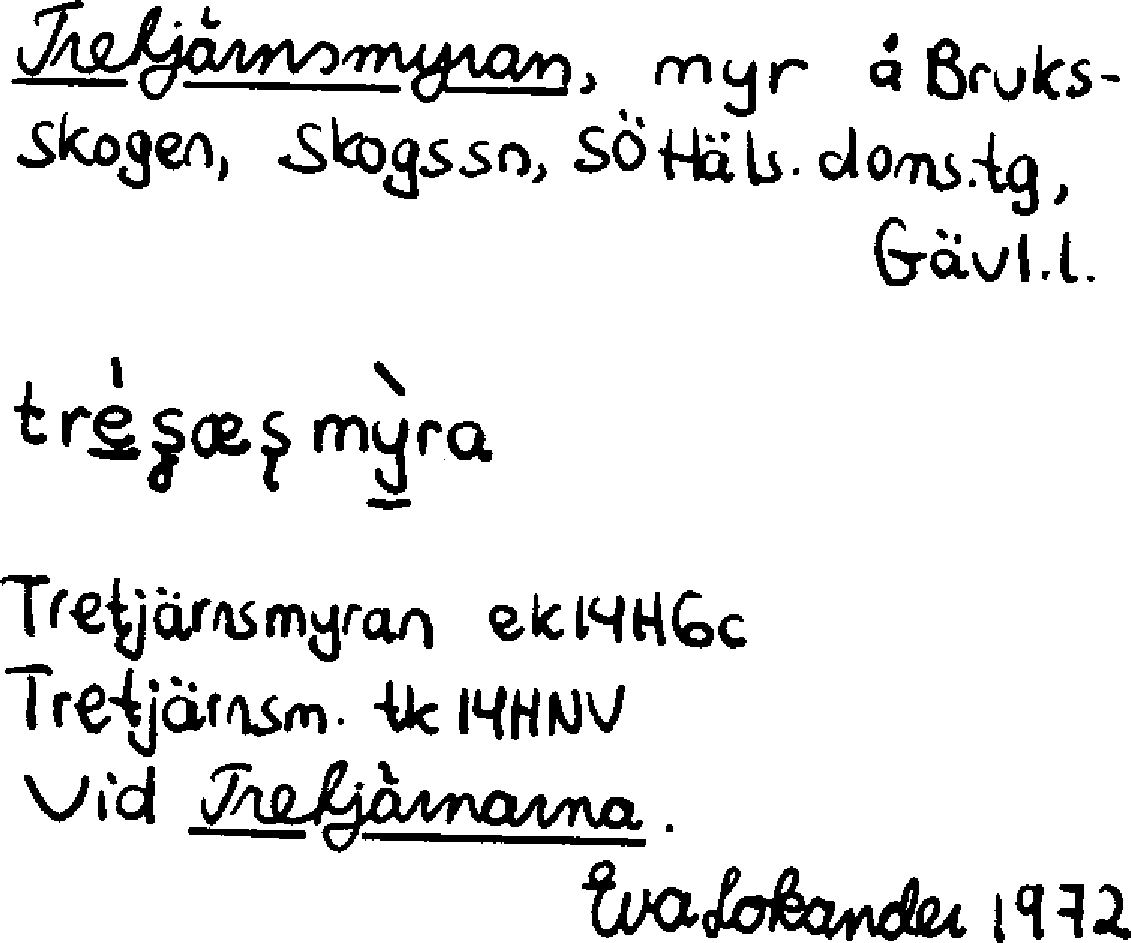 Tretjärnsmyran, myr å Bruks-
skogen, Skogssn, SöHäls. doms.tg,
Gävl.l.
Tretjärnsmyran ek14H6c
Tretjärnsm. tk 14HNV
Vid Tretjärnarna.
Eva Lokander 1972